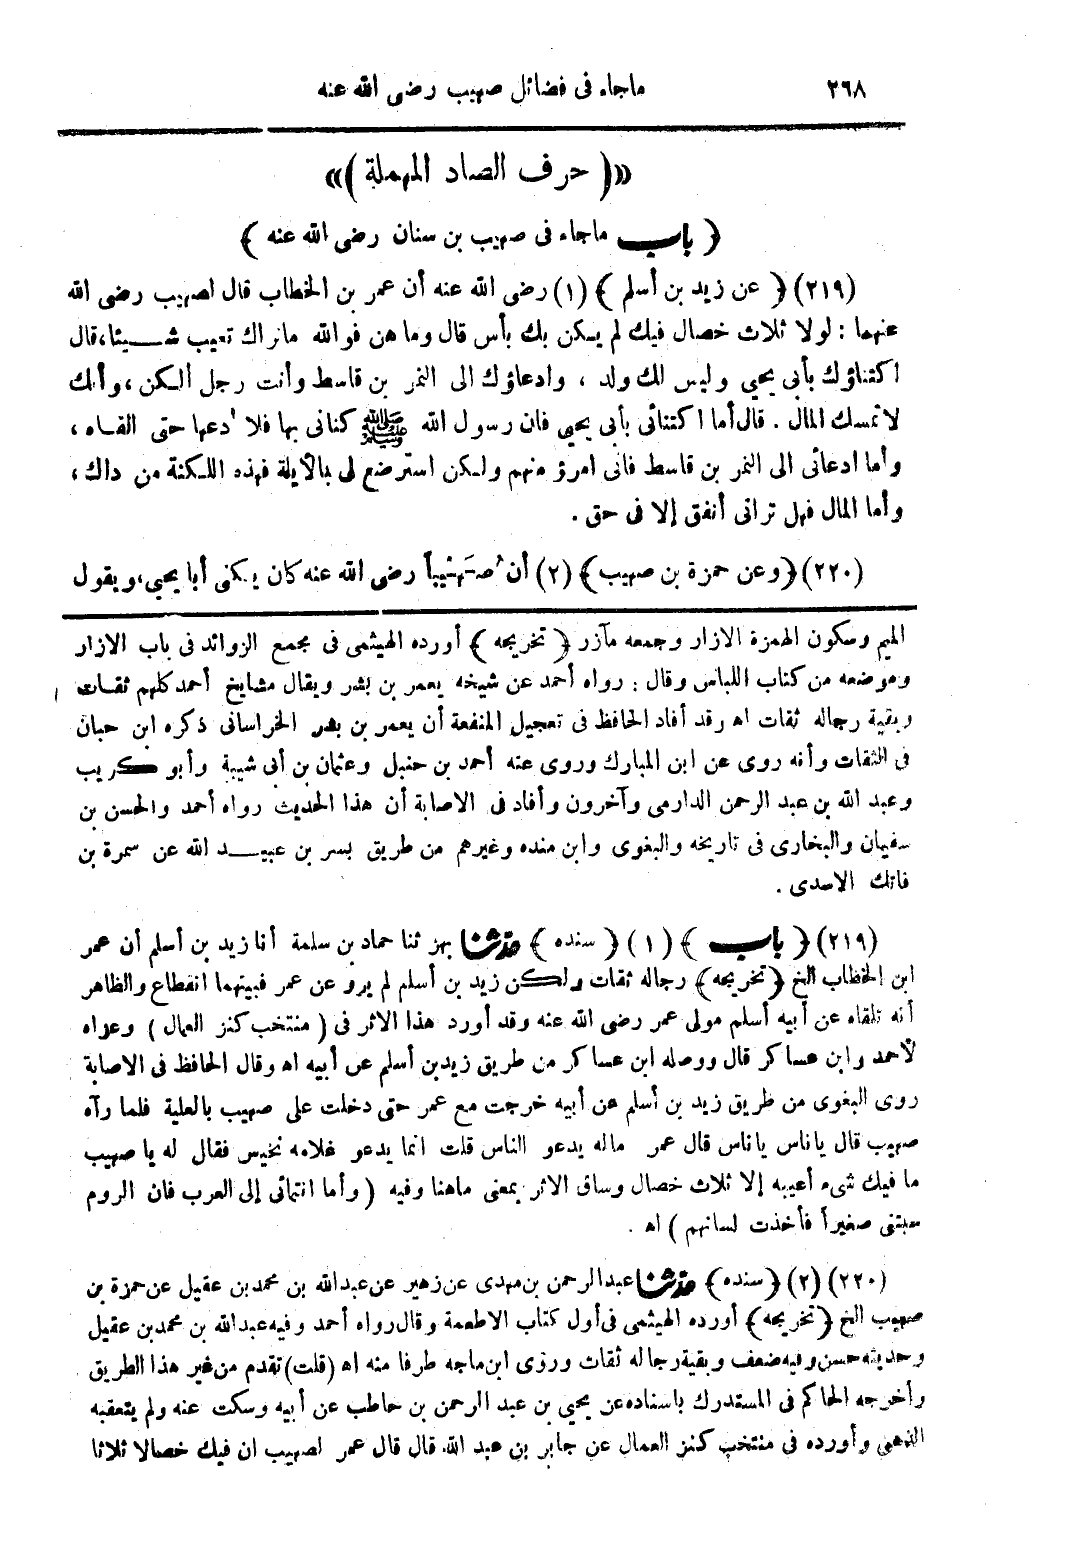 ٢٦٨ ماجاء فى فضائل صهيب رضى الله عنه
«( حرف الصاد المهملة )»
﴿ باب ماجاء فى صهيب بن سنان رضى الله عنه ﴾
(٢١٩) ﴿ عن زيد بن أسلم ﴾ (١) رضى الله عنه أن عمر بن الخطاب قال لصهيب رضى الله
عنهما : لولا ثلاث خصال فيك لم يكن بك بأس قال وما هن فوالله مانراك تعيب شيئا، قال
اكتناؤك بأبى يحيى وليس لك ولد ، وادعاؤك الى النمر بن قاسط وأنت رجل ألكن ، وأنك
لاتمسك المال . قال أما اكتنائى بأبى يحيى فان رسول الله ﷺ كنانى بها فلا أدعها حتى القاه ،
وأما ادعائى الى النمر بن قاسط فانى امرؤ منهم ولكن استرضع لى بالأيلة فهذه اللكنة من ذاك ،
وأما المال فهل ترانى أنفق إلا فى حق .
(٢٢٠) ﴿ وعن حمزة بن صهيب ﴾ (٢) أن صُهَيْباً رضى الله عنه كان يكنى أبا يحيى، ويقول
الميم وسكون الهمزة الازار وجمعه مآزر ﴿ تخريجه ﴾ أورده الهيثمى فى مجمع الزوائد فى باب الازار
وموضعه من كتاب اللباس وقال : رواه أحمد عن شيخه يعمر بن بشر ويقال مشايخ أحمد كلهم ثقات
وبقية رجاله ثقات اه وقد أفاد الحافظ فى تعجيل المنفعة أن يعمر بن بشر الخراسانى ذكره ابن حبان
فى الثقات وأنه روى عن ابن المبارك وروى عنه أحمد بن حنبل وعثمان بن أبى شيبة وأبو كريب
وعبد الله بن عبد الرحمن الدارمى وآخرون وأفاد فى الاصابة أن هذا الحديث رواه أحمد والحسن بن
سفيان والبخارى فى تاريخه والبغوى وابن منده وغيرهم من طريق بسر بن عبيد الله عن سمرة بن
فاتك الاسدى .
(٢١٩) ﴿ باب ﴾ (١) ﴿ سنده ﴾ حدثنا بهز ثنا حماد بن سلمة أنا زيد بن أسلم أن عمر
ابن الخطاب الخ ﴿ تخريجه ﴾ رجاله ثقات ولكن زيد بن أسلم لم يرو عن عمر فبينهما انقطاع والظاهر
أنه تلقاه عن أبيه أسلم مولى عمر رضى الله عنه وقد أورد هذا الاثر فى ( منتخب كنز العمال ) وعزاه
لأحمد وابن عساكر قال ووصله ابن عساكر من طريق زيد بن أسلم عن أبيه اه وقال الحافظ فى الاصابة
روى البغوى من طريق زيد بن أسلم عن أبيه خرجت مع عمر حتى دخلت على صهيب بالعلية فلما رآه
صهيب قال ياناس ياناس قال عمر ماله يدعو الناس قلت انما يدعو غلامه نخيس فقال له يا صهيب
ما فيك شىء أعيبه إلا ثلاث خصال وساق الاثر بمعنى ماهنا وفيه ( وأما انتمائى إلى العرب فان الروم
سبتنى صغيراً فأخذت لسانهم ) اه .
(٢٢٠) (٢) ﴿ سنده ﴾ حدثنا عبدالرحمن بن مهدى عن زهير عن عبدالله بن محمد بن عقيل عن حمزة بن
صهيب الخ ﴿ تخريجه ﴾ أورده الهيثمى فى أول كتاب الاطعمة وقال رواه أحمد وفيه عبدالله بن محمد بن عقيل
وحديثه حسن وفيه ضعف وبقية رجاله ثقات وروى ابن ماجه طرفا منه اه (قلت) تقدم من غير هذا الطريق
وأخرجه الحاكم فى المستدرك باسناده عن يحيى بن عبد الرحمن بن حاطب عن أبيه وسكت عنه ولم يتعقبه
الذهبى وأورده فى منتخب كنز العمال عن جابر بن عبد الله قال قال عمر لصهيب ان فيك خصالا ثلاثا